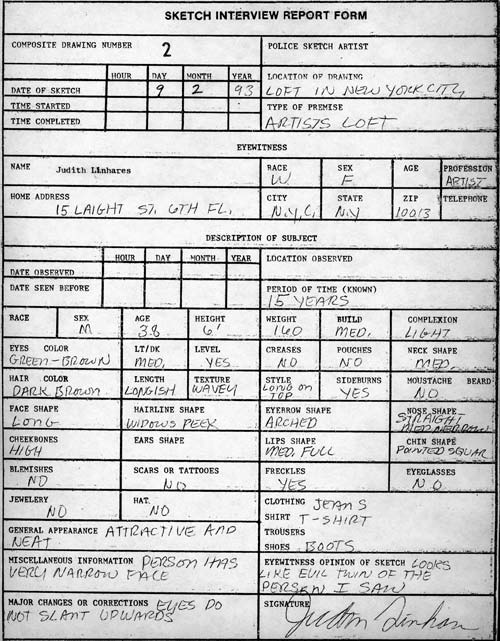 SKETCH INTERVIEW REPORT FORM
COMPOSITE DRAWING NUMBER 2
POLICE SKETCH ARTIST
HOUR DAY MONTH YEAR
LOCATION OF DRAWING
DATE OF SKETCH 9 2 93
LOFT IN NEW YORK CITY
TIME STARTED
TYPE OF PREMISE
TIME COMPLETED
ARTISTS LOFT
EYEWITNESS
NAME Judith Linhares
RACE SEX AGE PROFESSION
W F ARTIST
HOME ADDRESS
CITY STATE ZIP TELEPHONE
15 LAIGHT ST. 6TH FL.
N.Y.C. N.Y 10013
DESCRIPTION OF SUBJECT
HOUR DAY MONTH YEAR
LOCATION OBSERVED
DATE OBSERVED
DATE SEEN BEFORE
PERIOD OF TIME (KNOWN)
15 YEARS
RACE SEX AGE HEIGHT WEIGHT BUILD COMPLEXION
M 38 6' 160 MED. LIGHT
EYES COLOR LT/DK LEVEL CREASES POUCHES NECK SHAPE
GREEN-BROWN MED. YES NO NO MED.
HAIR COLOR LENGTH TEXTURE STYLE SIDEBURNS MOUSTACHE BEARD
DARK BROWN LONGISH WAVEY LONG ON TOP YES NO
FACE SHAPE HAIRLINE SHAPE EYEBROW SHAPE NOSE SHAPE
LONG WIDOWS PEEK ARCHED STRAIGHT
MED NERROW
CHEEKBONES EARS SHAPE LIPS SHAPE CHIN SHAPE
HIGH MED. FULL POINTED SQUAR
BLEMISHES SCARS OR TATTOOES FRECKLES EYEGLASSES
NO NO YES NO
JEWELERY HAT
NO NO
CLOTHING JEANS
SHIRT T-SHIRT
GENERAL APPEARANCE ATTRACTIVE AND
NEAT
TROUSERS
SHOES BOOTS
MISCELLANEOUS INFORMATION PERSON HAS
VERY NARROW FACE
EYEWITNESS OPINION OF SKETCH LOOKS
LIKE EVIL TWIN OF THE
PERSON I SAW
MAJOR CHANGES OR CORRECTIONS EYES DO
NOT SLANT UPWARDS
SIGNATURE Judith Linhares